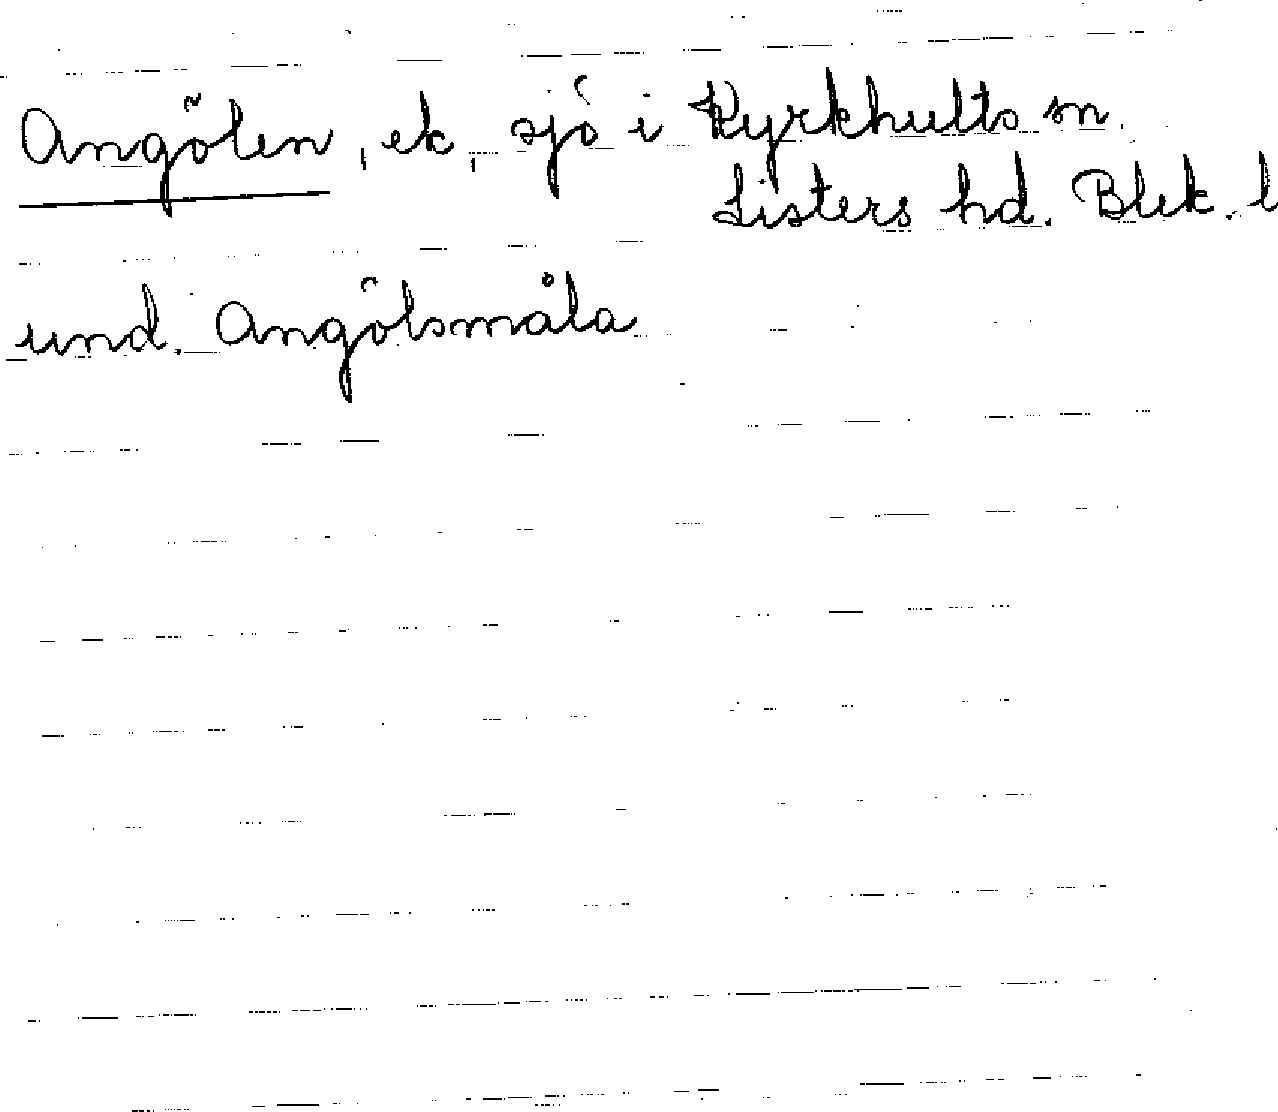 Angölen, ek, sjö i Kyrkhults sn.
Listers hd. Blek. l
und. Angölsmåla